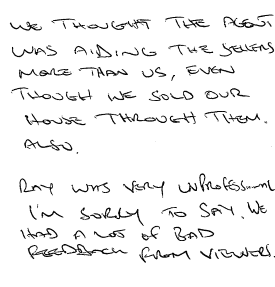 WE THOUGHT THE AGENT
WAS AIDING THE SELLERS
MORE THAN US, EVEN
THOUGH WE SOLD OUR
HOUSE THROUGH THEM.
ALSO.
RAY WAS VERY UNPROFESSIONAL
I'M SORRY TO SAY. WE
HAD A LOT OF BAD
FEEDBACK FROM VIEWERS.